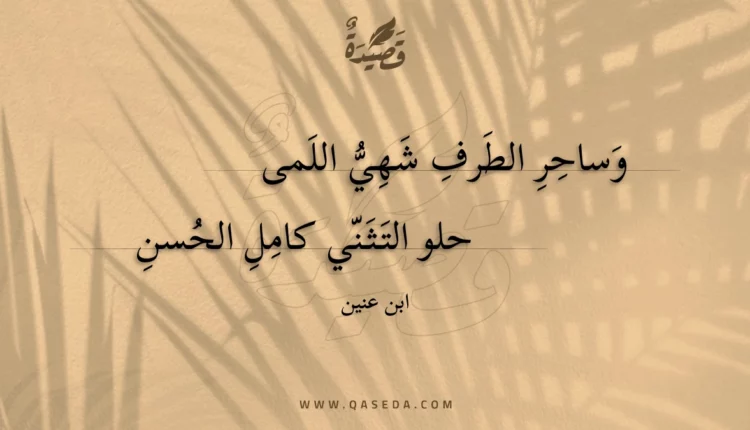 قَصِيْدَةٌ
وَساحِرِ الطَرفِ شَهِيُّ اللَمى
حلو التَثَنّي كامِلِ الحُسنِ
ابن عنين
WWW.QASEDA.COM